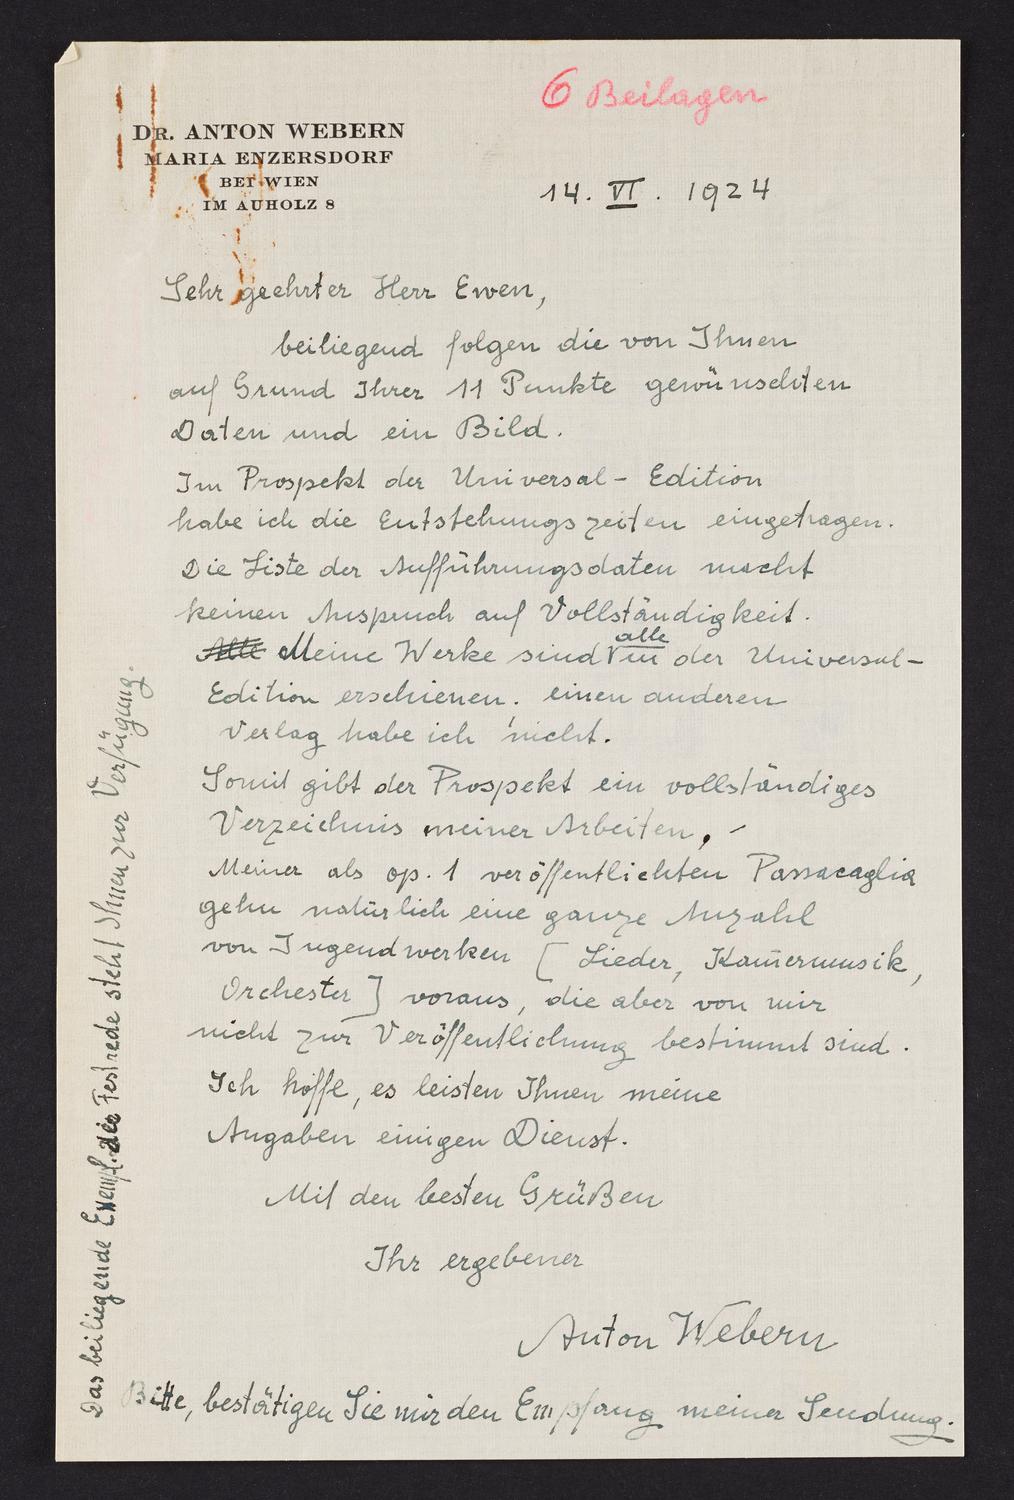 6 Beilagen
DR. ANTON WEBERN
MARIA ENZERSDORF
BEI WIEN
IM AUHOLZ 8
14. VI. 1924
Sehr geehrter Herr Ewen,
beiliegend folgen die von Ihnen
auf Grund Ihrer 11 Punkte gewünschten
Daten und ein Bild.
Im Prospekt der Universal-Edition
habe ich die Entstehungszeiten eingetragen.
Die Liste der Aufführungsdaten macht
keinen Anspruch auf Vollständigkeit.
Alle Meine Werke sind alle in der Universal-
Edition erschienen. einen anderen
Verlag habe ich nicht.
Somit gibt der Prospekt ein vollständiges
Verzeichnis meiner Arbeiten, -
Meiner als op. 1 veröffentlichten Passacaglia
gehn natürlich eine ganze Anzahl
von Jugendwerken [Lieder, Kam̄ermusik,
Orchester] voraus, die aber von mir
nicht zur Veröffentlichung bestimmt sind.
Ich hoffe, es leisten Ihnen meine
Angaben einigen Dienst.
Mit den besten Grüßen
Ihr ergebener
Anton Webern
Bitte, bestätigen Sie mir den Empfang meiner Sendung.
Das beiliegende Exempl. der Festrede steht Ihnen zur Verfügung.